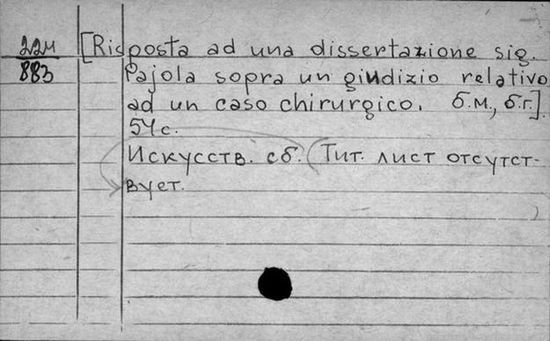 22м [Risposta ad una dissertazione sig.
883 Pajola sopra un giudizio relativo
ad un caso chirurgico. б.м., б.г.].
54 с.
Искусств. сб. (Тит. лист отсутст-
вует.
)